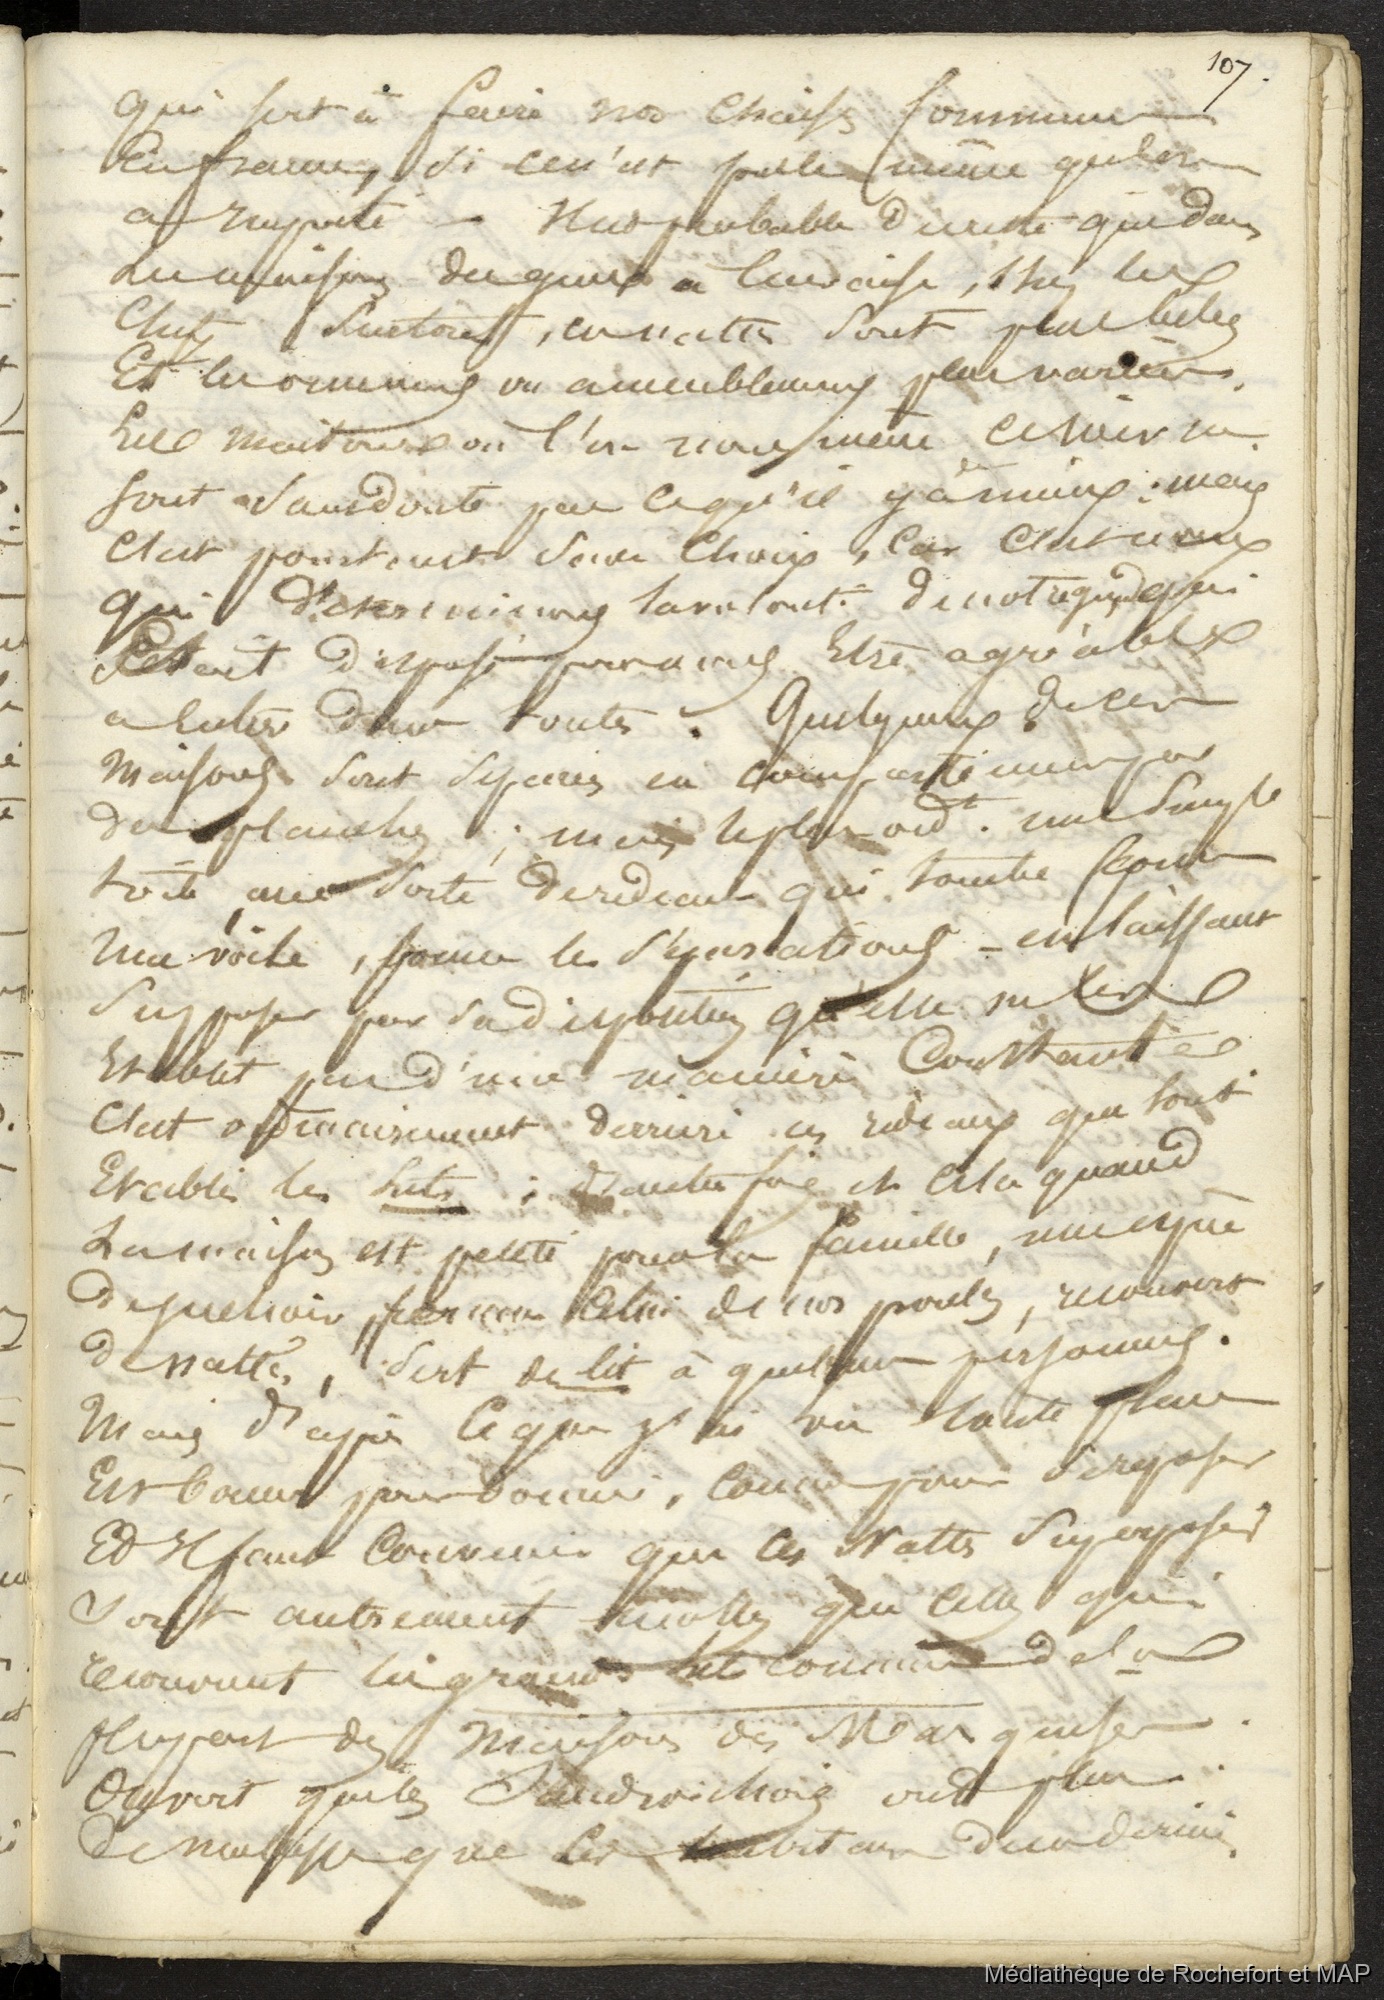 107.
qui sert à faire nos chaises communes
En france, si ce n'est pas le même qu'elon
a rapporté - Il est probable du reste que dans
Les maisons des gens à leur aise, chez les
Chefs surtout, ces nattes sont plus belles
Et les ornemens ou ameublemens plus variés.
Les maisons où l'on nous mène ce soir ne
sont sans doute pas ce qu'il y a de mieux : mais
C'est pourtant sans choix, car c'est
qui déterminons la volonté de notre guide qui
s'était disposé pour nous Etre agréable
a entrer dans toutes. Quelques unes de ces
Maisons sont séparées en compartimens par
des planches ; mais le plus ord.t une simple
toile, une sorte de rideau qui tombe comme
une voile, forme les séparations - en laissant
supposer par sa disposition qu'elle ne les
Etablit pas d'une manière Constante
C'est ordinairement derrière ces rideaux que sont
Etablis les lits ; d'autres fois et cela quand
La maison est petite pour la famille, une espèce
de juchoir, comme celui de nos poules, recouvert
de nattes, sert de lit à quelques personnes.
Mais d'après ce que j'ai vu toute place
Est bonne pour dormir, comme pour se reposer
Et Il faut convenir que ces Nattes superposées
Sont autrement molles que celles qui
recouvrent les grands lits communs de la
plupart des Maisons des Marquises.
On voit que les Sandwichois ont plus
de mollesse que les habitans de ces dernières.
Médiathèque de Rochefort et MAP